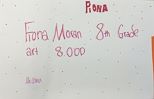 Fiona
Fiona Moran 8th Grade
art 8.000